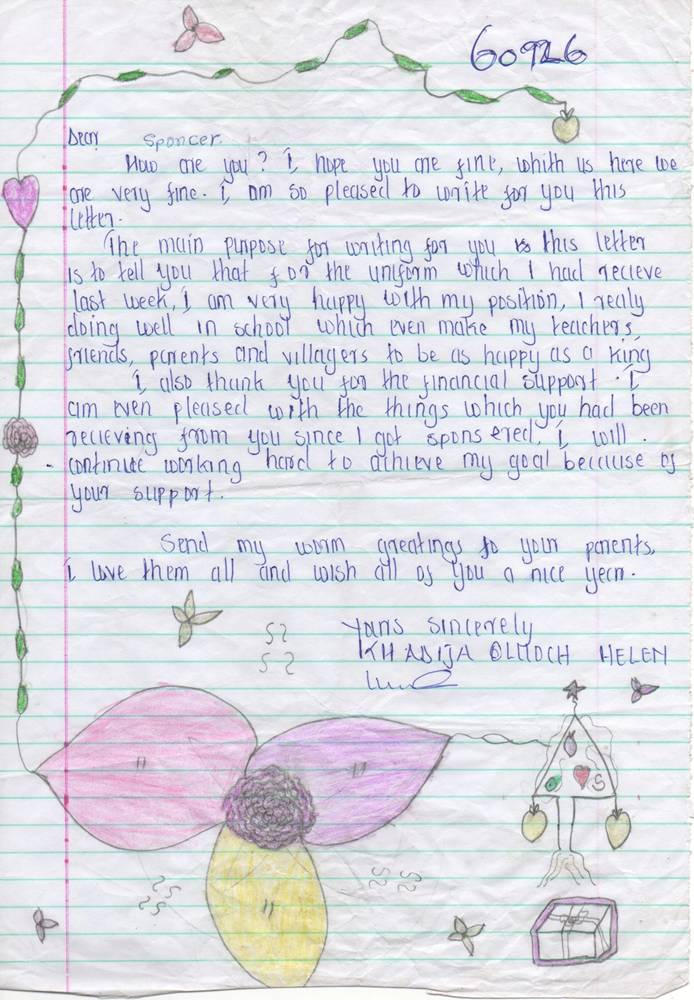 60926
Dear Sponcer.
How are you? I, hope you are fine, whith us here we
are very fine. I, am so pleased to write for you this
letter.
The main purpose for writing for you is this letter
is to tell you that for the uniform which I had recieve
last week, I am very happy with my position, I realy
doing well in school which even make my teachers,
friends, parents and villagers to be as happy as a king
I also thank you for the financial support. I
am even pleased with the things which you had been
recieving from you since I got sponsered, I will.
continue working hard to achieve my goal because of
your support.
Send my worm greatings to your parents,
I love them all and wish all of you a nice year.
yours sincerely
KHADIJA HELEN